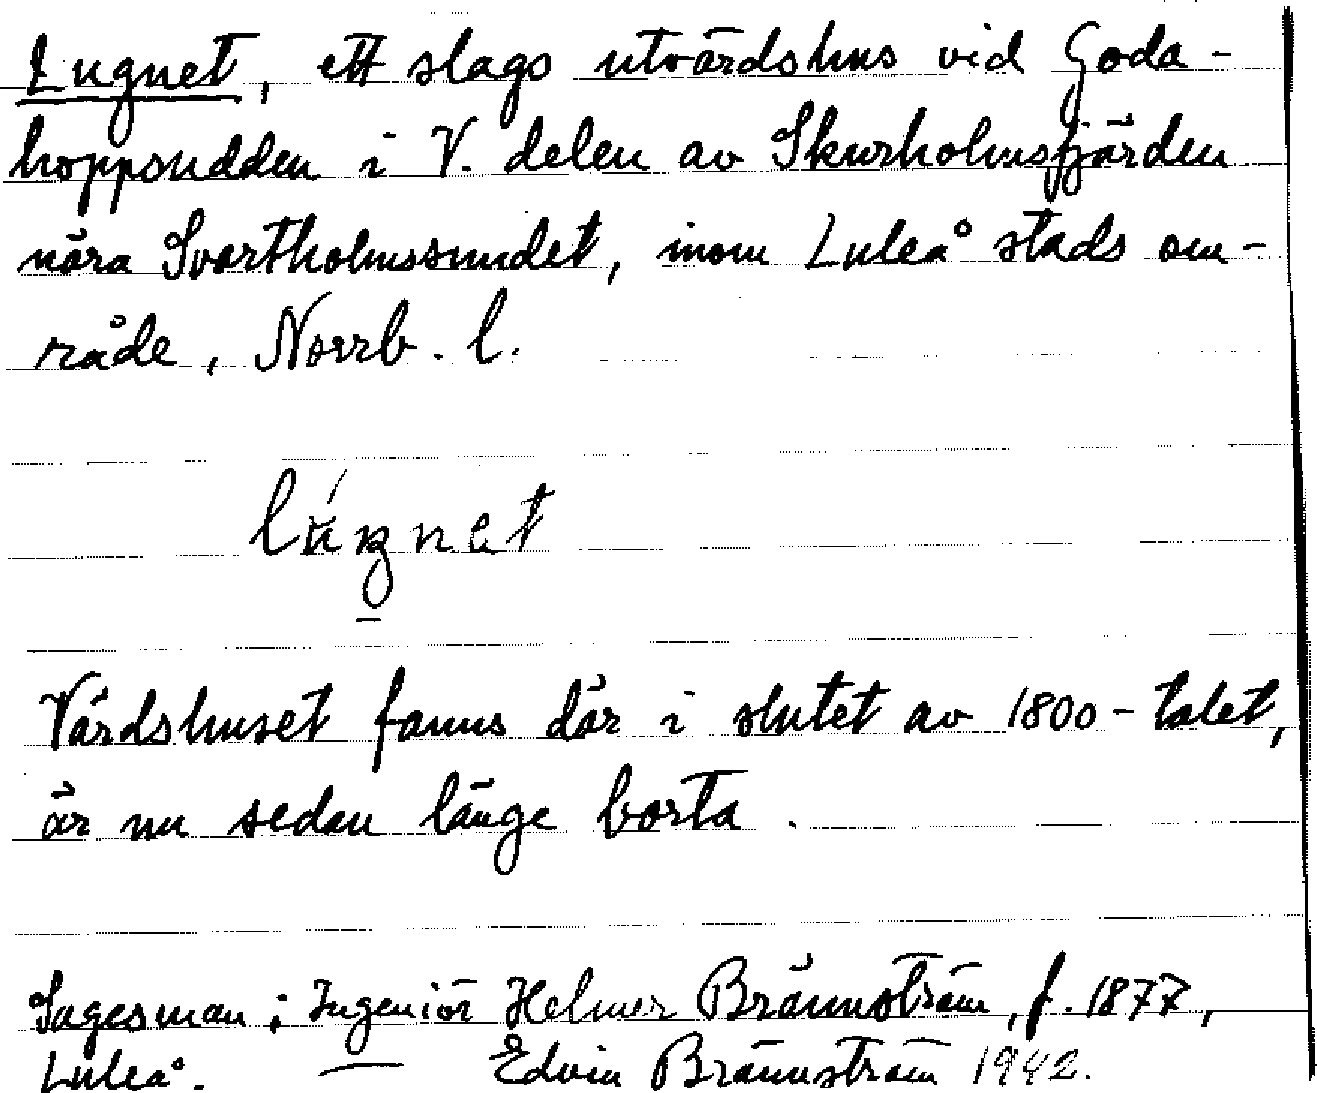 Lugnet, ett slags utvärdshus vid Goda-
hoppsudden i V. delen av Skurholmsfjärden
nära Svartholmssundet, inom Luleå stads om-
råde, Norrb. l.
Värdshuset fanns där i slutet av 1800-talet,
är nu sedan länge borta.
Sagesman: Ingeniör Helmer Brännström, f. 1877,
Luleå. — Edvin Brännström 1942.